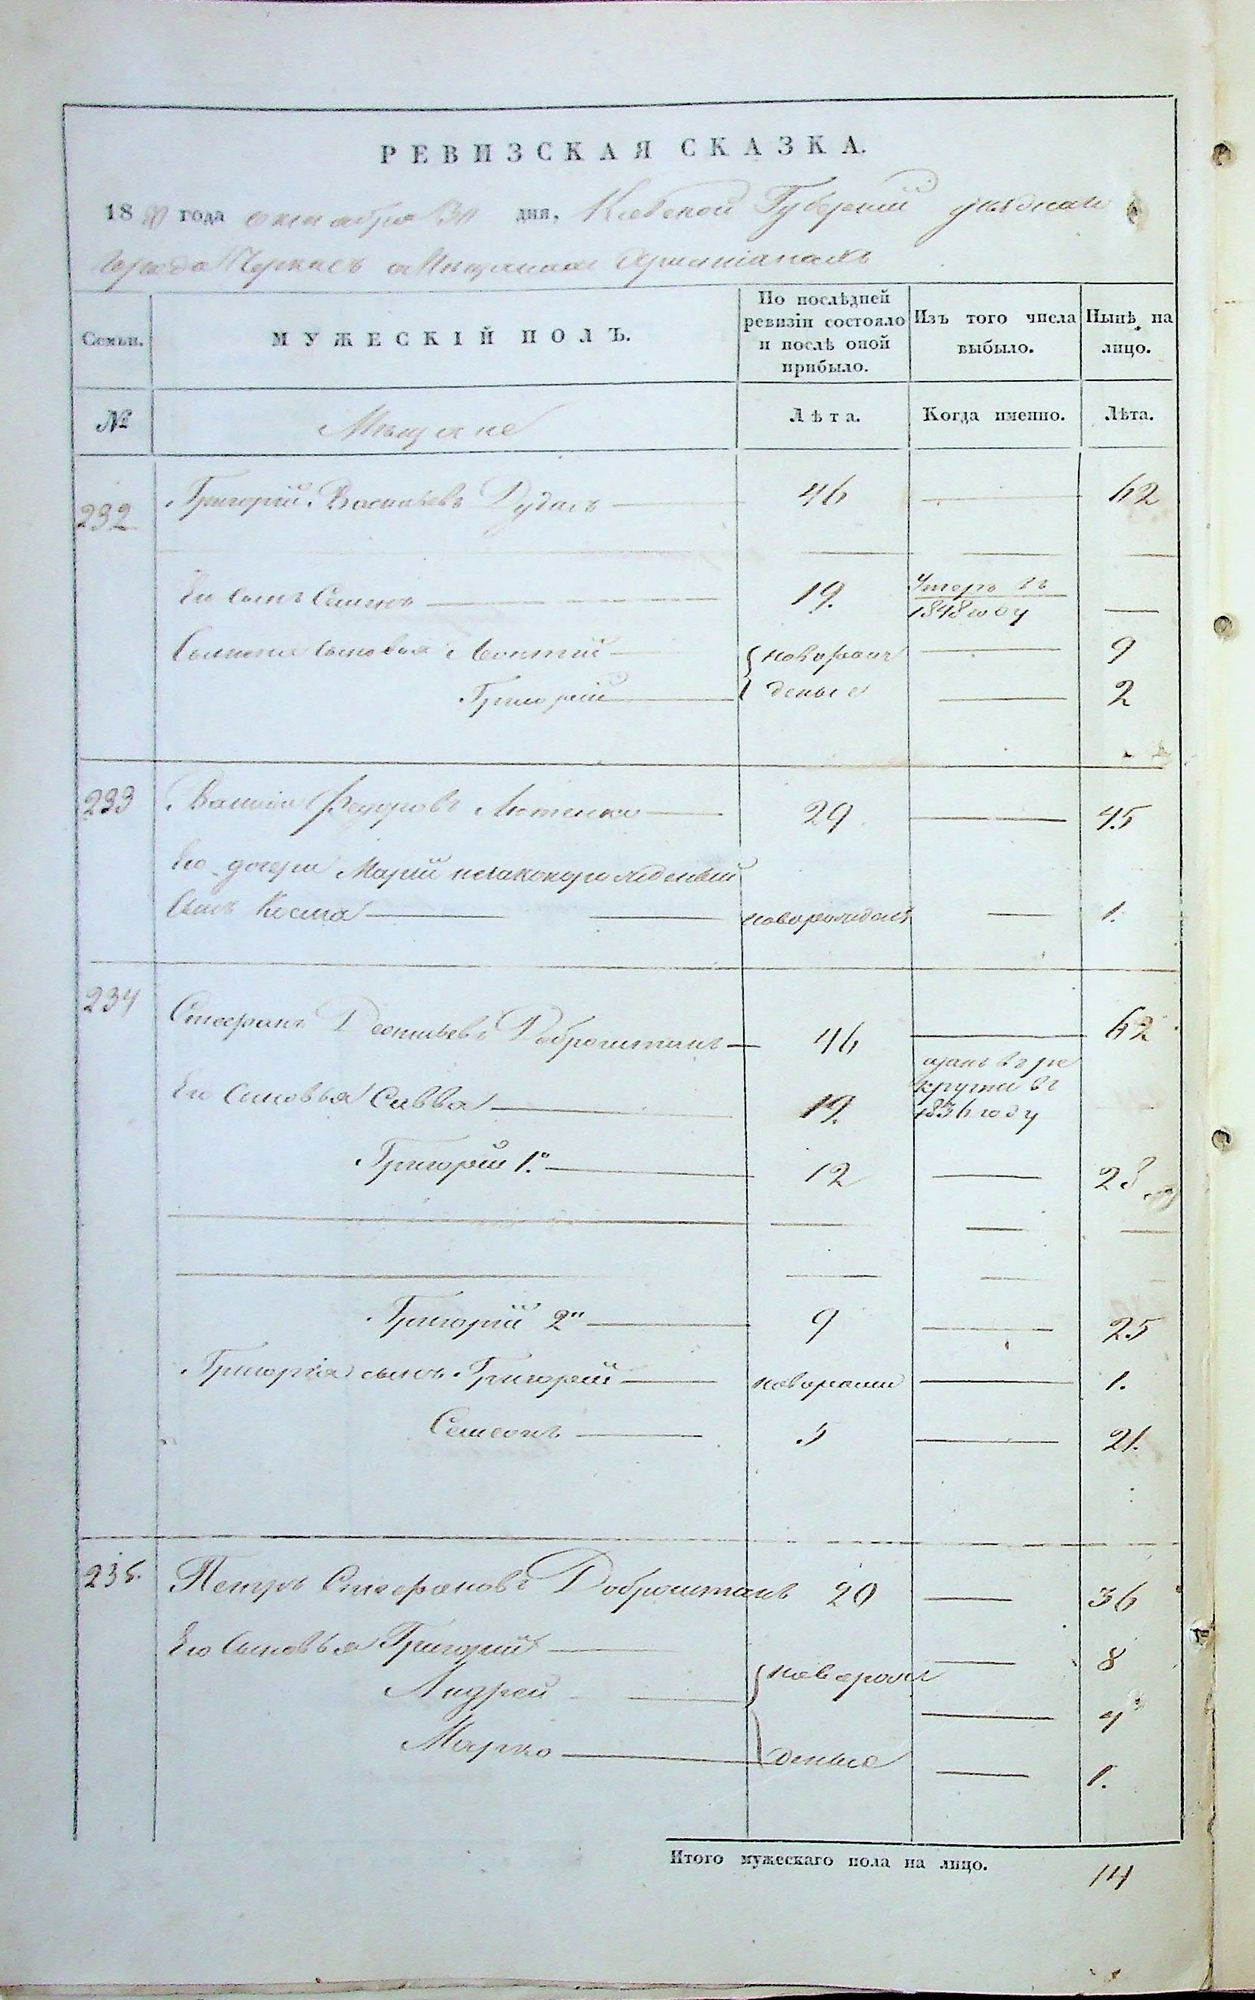 РЕВИЗСКАЯ СКАЗКА.
1850 года октября 30 дня, Киевской Губерніи уѣзднаго
города Черкасъ о Мѣщанахъ Христіанахъ
Семьи. МУЖЕСКІЙ ПОЛЪ. По послѣдней ревизіи состояло и послѣ оной прибыло. Изъ того числа выбыло. Нынѣ на лицо.
№ Мѣщане Лѣта. Когда именно. Лѣта.
232 Григорій Васильевъ 46 — 62
Его сынъ Семенъ 19. Умеръ въ 1848 году —
Семена сыновья Леонтій { новорож — 9
Григорій деные — 2
233 Василій Федоровъ 29 — 45
Его дочери Маріи незаконорожденный
сынъ Косма новорожденъ — 1.
234 Стефанъ Леонтьевъ Доброштанъ 46 — 62
Его сыновья Савва 19. въ рекруты въ 1836 году
Григорій 1й 12 — 28
Григорій 2й 9 — 25
Григорія сынъ Григорій новорожд — 1.
Семенъ 5 — 21.
235. Петръ Стефановъ Доброштанъ 20 — 36
Его сыновья Григорій — 8
Андрей { новорож —
Марко деные — 1.
Итого мужескаго пола на лицо. 14